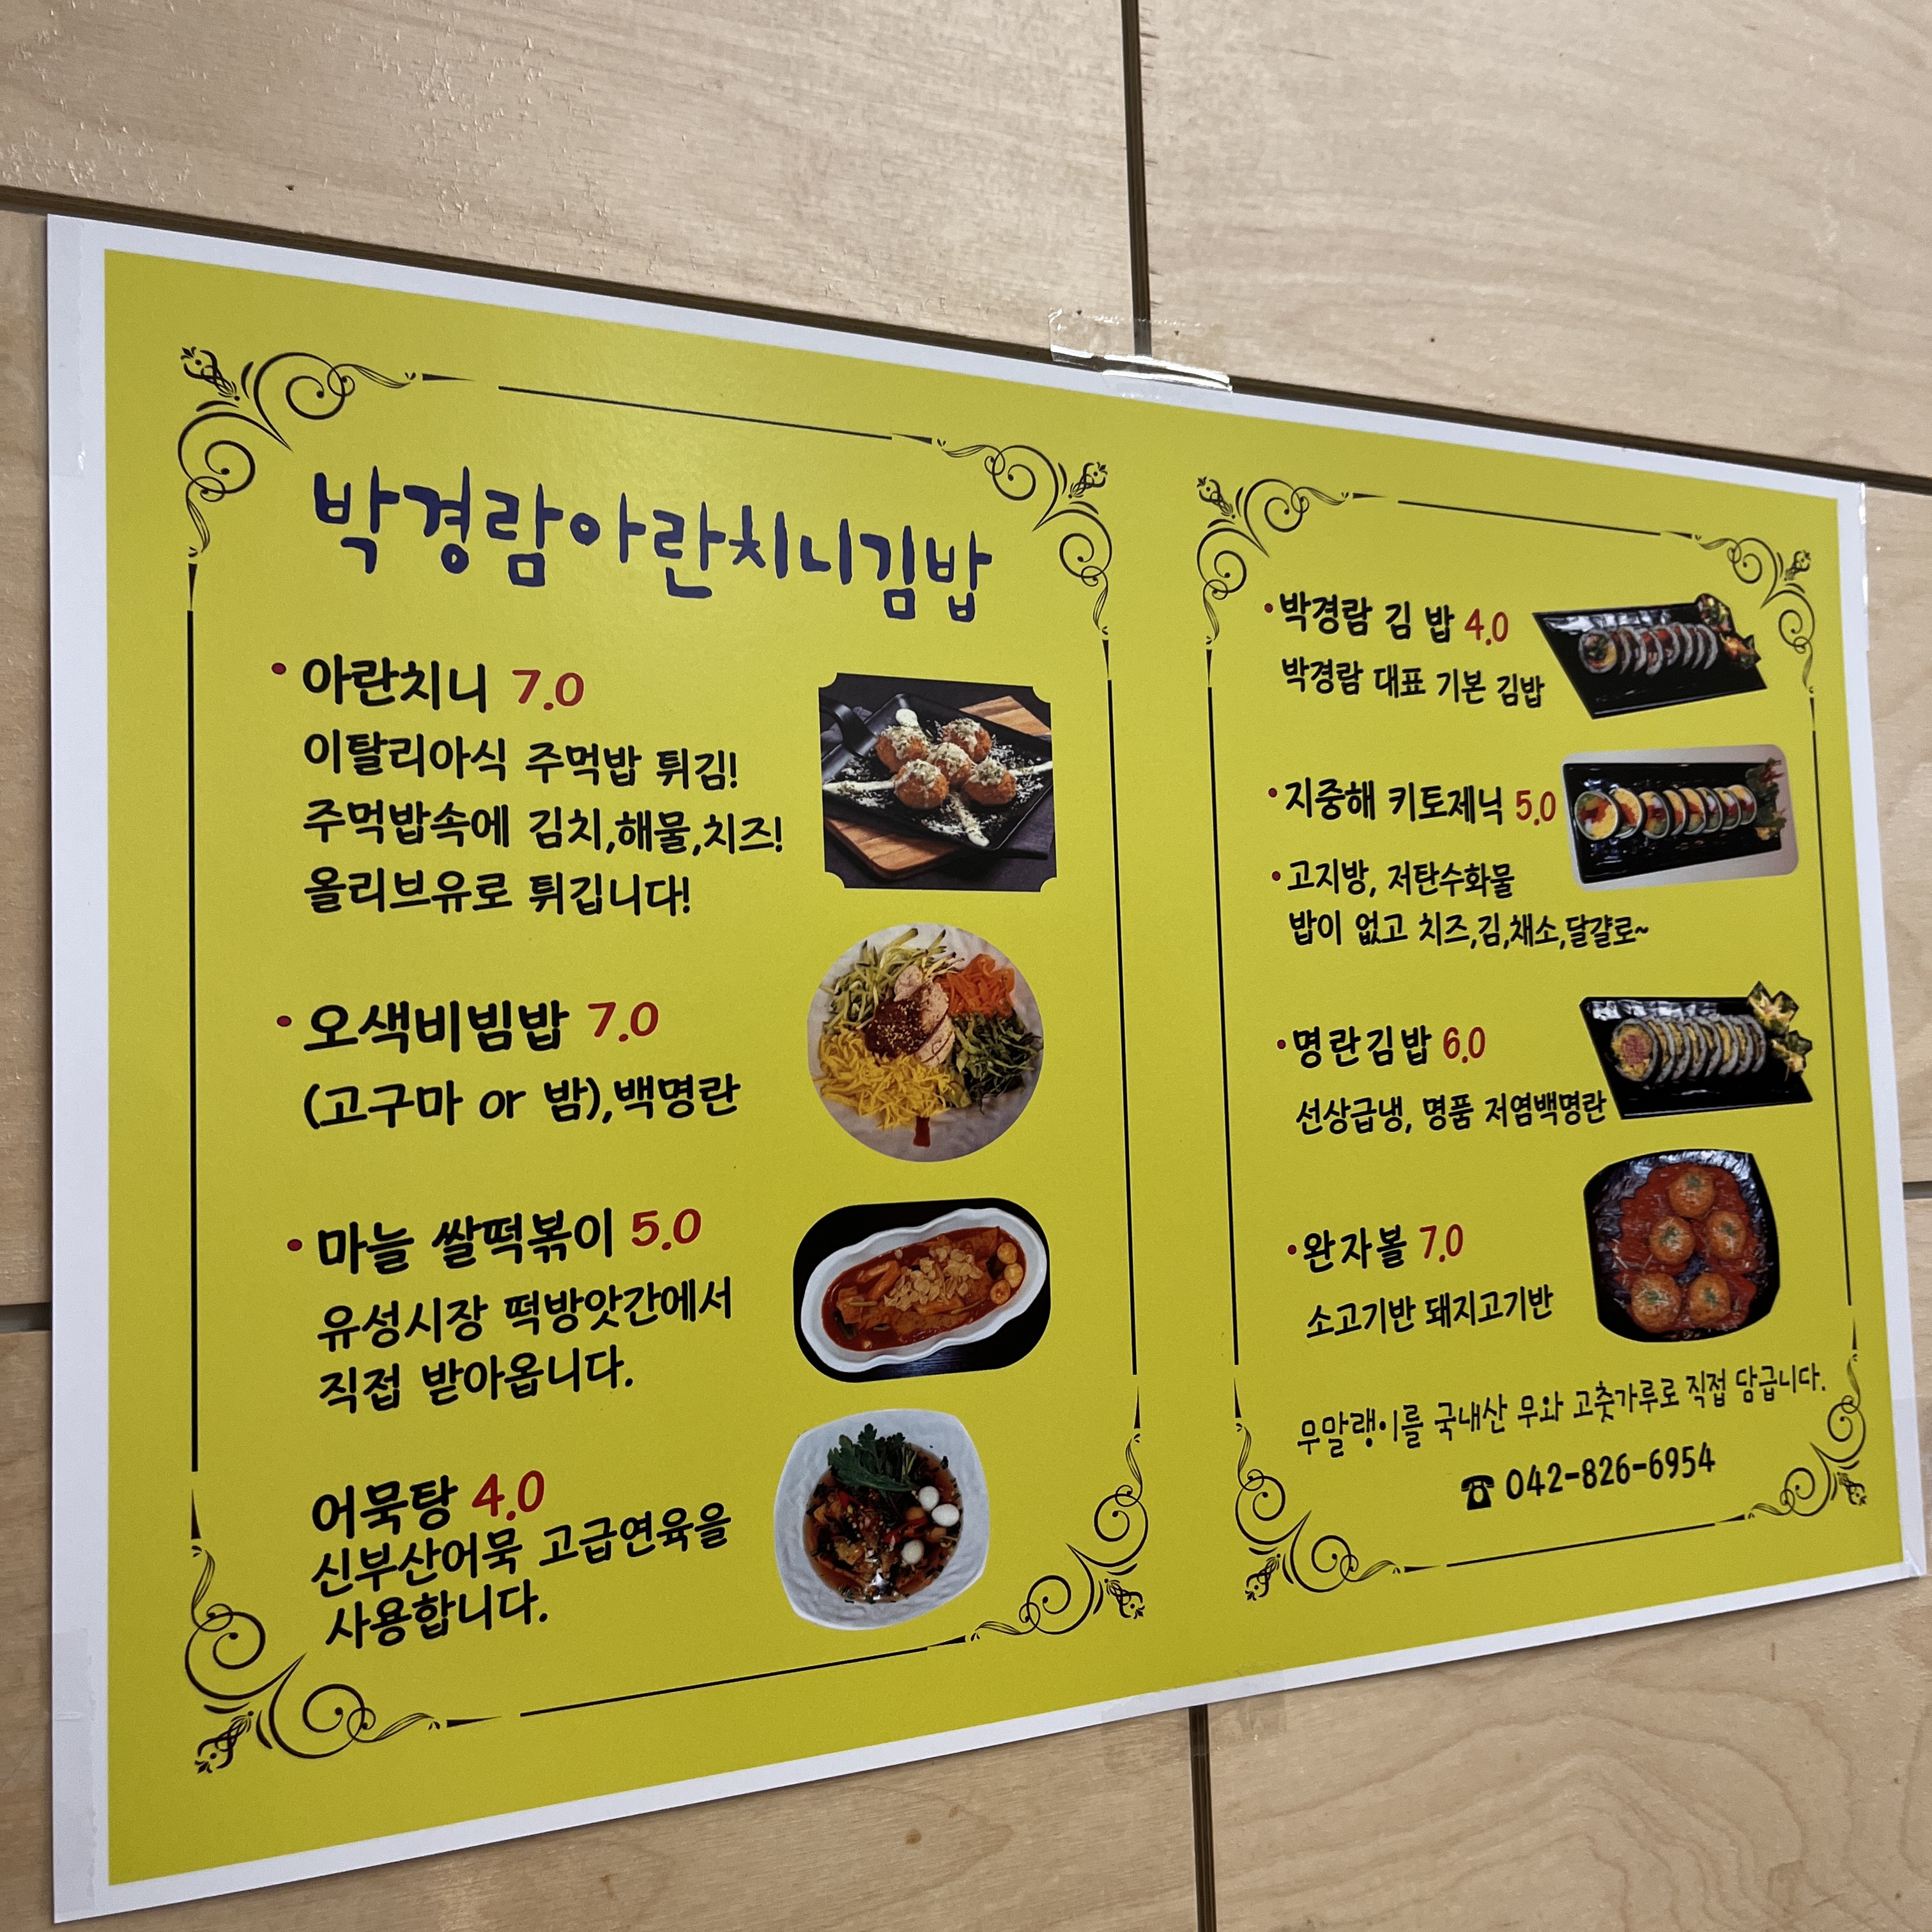 박경람아란치니김밥
• 아란치니 7.0
이탈리아식 주먹밥 튀김!
주먹밥속에 김치,해물,치즈!
올리브유로 튀깁니다!
• 오색비빔밥 7.0
(고구마 or 밤),백명란
• 마늘 쌀떡볶이 5.0
유성시장 떡방앗간에서
직접 받아옵니다.
어묵탕 4.0
신부산어묵 고급연육을
사용합니다.
• 박경람 김 밥 4.0
박경람 대표 기본 김밥
• 지중해 키토제닉 5.0
• 고지방, 저탄수화물
밥이 없고 치즈,김,채소,달걀로~
• 명란김밥 6.0
선상급냉, 명품 저염백명란
• 완자볼 7.0
소고기반 돼지고기반
무말랭이를 국내산 무와 고춧가루로 직접 담급니다.
☎ 042-826-6954